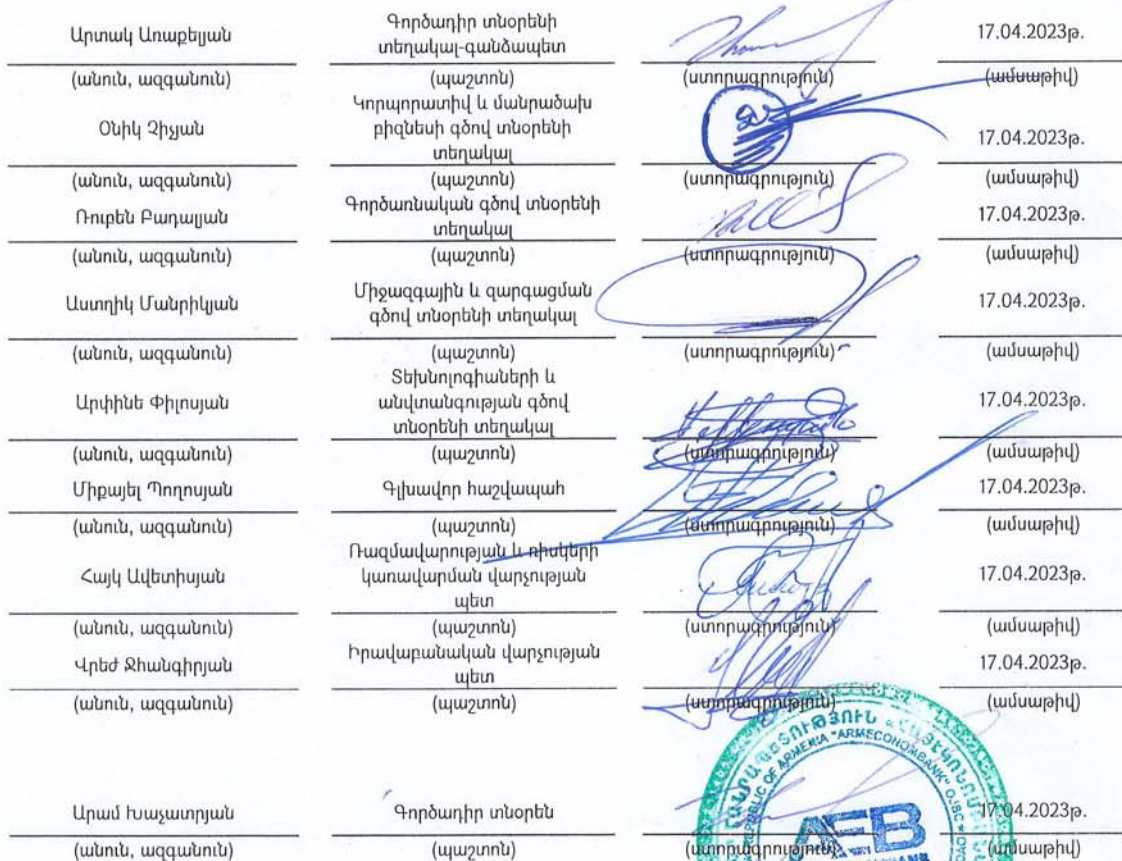 Արտակ Առաքելյան
Գործադիր տնօրենի
տեղակալ-գանձապետ
17.04.2023թ.
(անուն, ազգանուն) (պաշտոն) (ստորագրություն) (ամսաթիվ)
Օնիկ Չիչյան
Կորպորատիվ և մանրածախ
բիզնեսի գծով տնօրենի
տեղակալ
17.04.2023թ.
(անուն, ազգանուն) (պաշտոն) (ստորագրություն) (ամսաթիվ)
Ռուբեն Բադալյան
Գործառնական գծով տնօրենի
տեղակալ
17.04.2023թ.
(անուն, ազգանուն) (պաշտոն) (ստորագրություն) (ամսաթիվ)
Աստղիկ Մանրիկյան
Միջազգային և զարգացման
գծով տնօրենի տեղակալ
17.04.2023թ.
(անուն, ազգանուն) (պաշտոն) (ստորագրություն) (ամսաթիվ)
Արփինե Փիլոսյան
Տեխնոլոգիաների և
անվտանգության գծով
տնօրենի տեղակալ
17.04.2023թ.
(անուն, ազգանուն) (պաշտոն) (ստորագրություն) (ամսաթիվ)
Միքայել Պողոսյան Գլխավոր հաշվապահ 17.04.2023թ.
(անուն, ազգանուն) (պաշտոն) (ստորագրություն) (ամսաթիվ)
Հայկ Ավետիսյան
Ռազմավարության և ռիսկերի
կառավարման վարչության
պետ
17.04.2023թ.
(անուն, ազգանուն) (պաշտոն) (ստորագրություն) (ամսաթիվ)
Վրեժ Ջհանգիրյան
Իրավաբանական վարչության
պետ
17.04.2023թ.
(անուն, ազգանուն) (պաշտոն) (ստորագրություն) (ամսաթիվ)
REPUBLIC OF ARMENIA "ARMECONOMBANK" OJSC
AEB
Արամ Խաչատրյան Գործադիր տնօրեն 17.04.2023թ.
(անուն, ազգանուն) (պաշտոն) (ստորագրություն) (ամսաթիվ)